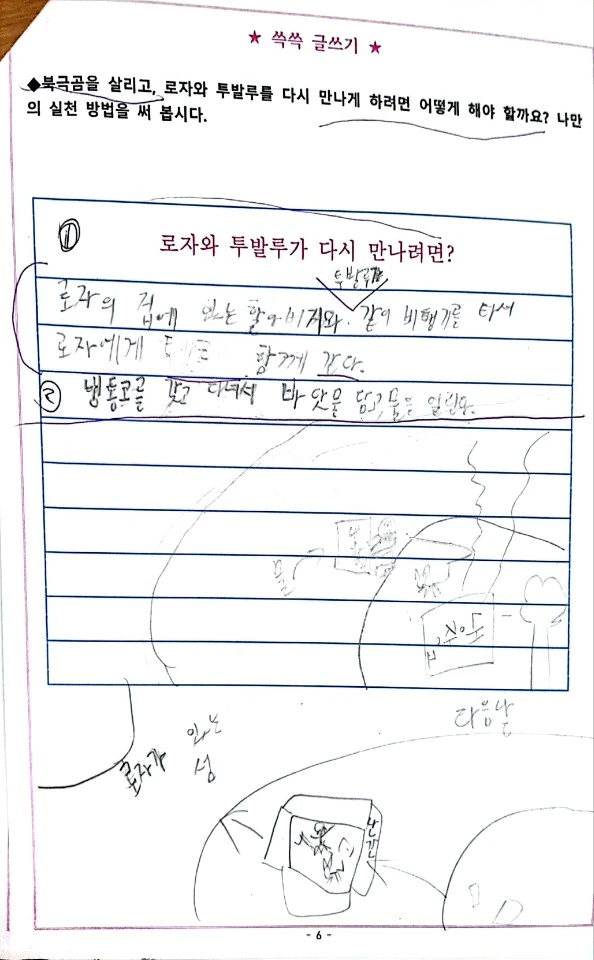 ★ 쓱쓱 글쓰기 ★
◆북극곰을 살리고, 로자와 투발루를 다시 만나게 하려면 어떻게 해야 할까요? 나만
의 실천 방법을 써 봅시다.
① 로자와 투발루가 다시 만나려면?
투발루가
로자의 집에 있는 할아버지와 같이 비행기를 타서
로자에게 함께 간다.
② 냉동고를 갖고 다녀서 바닷물을 담고, 물을 얼린다.
물
다음날
로자가 있는
섬
난간
- 6 -